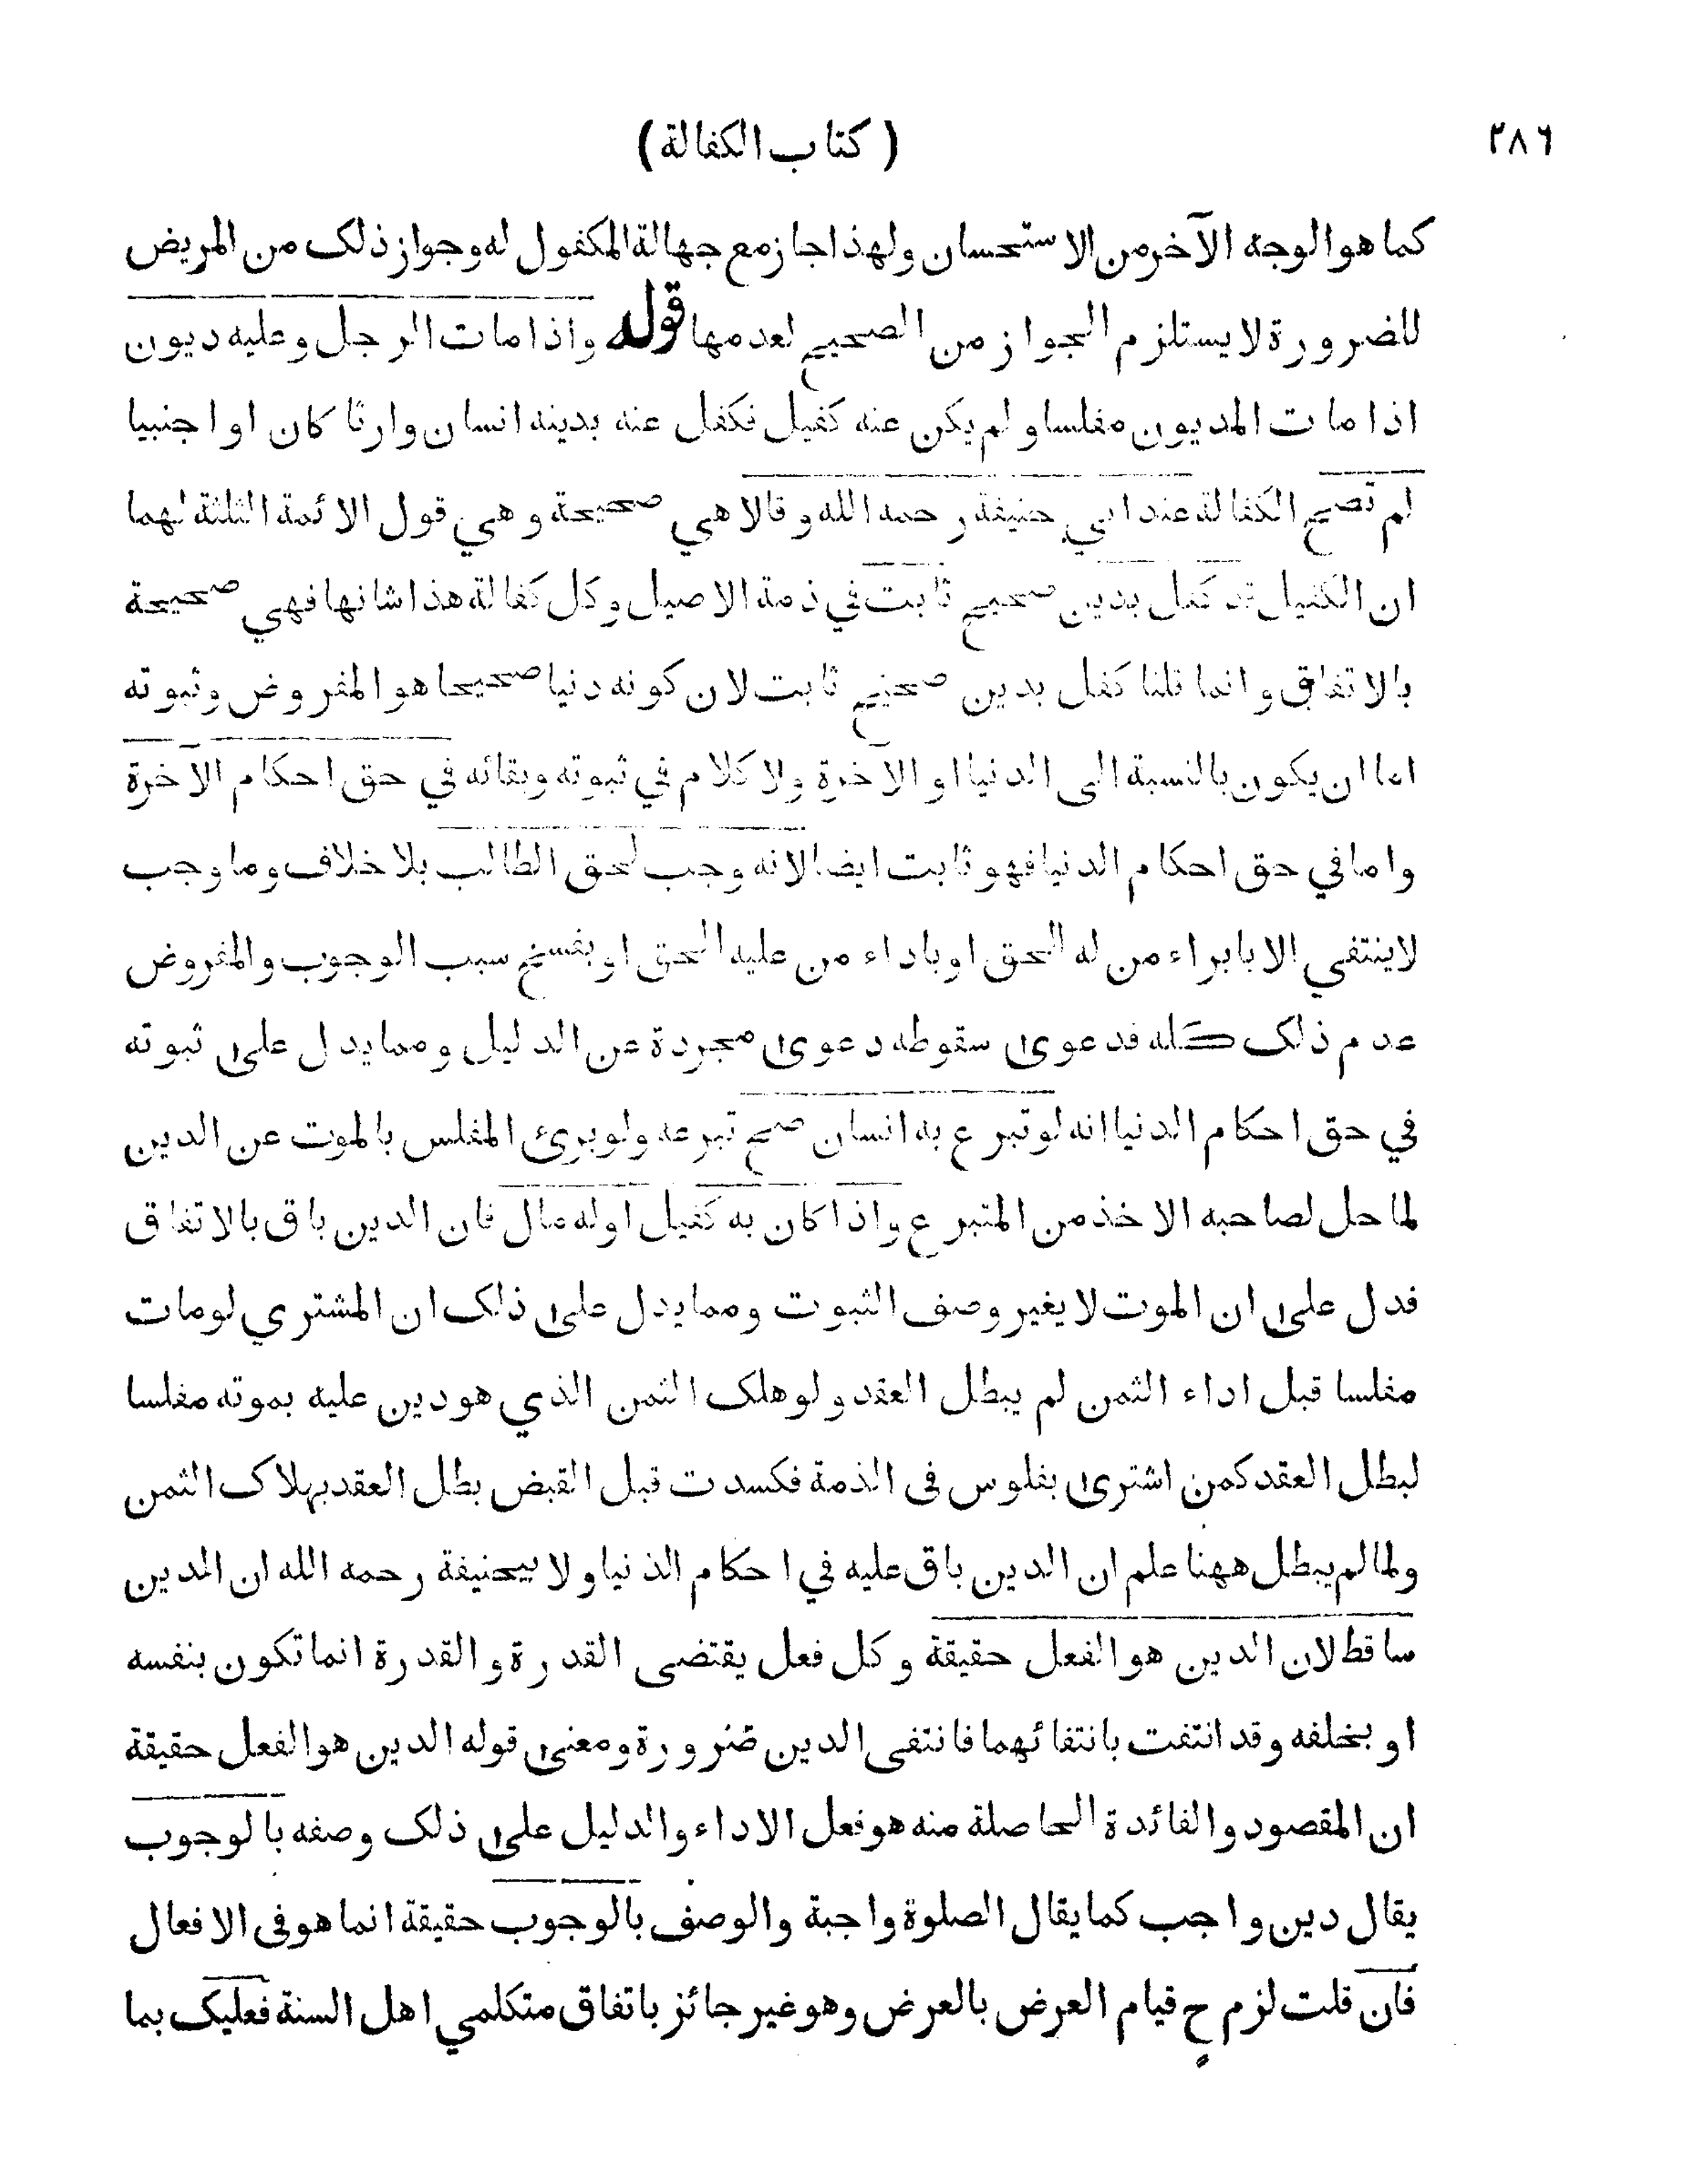 ٢٨٦
( كتاب الكفالة )
كما هو الوجه الآخر من الاستحسان ولهذا جاز مع جهالة المكفول له وجواز ذلک من المريض
للضرورة لا يستلزم الجواز من الصحيح لعدمها قوله واذا مات الرجل وعليه ديون
اذا مات المديون مفلسا ولم يكن عنه كفيل فكفل عنه بدينه انسان وارثا كان او اجنبيا
لم تصح الكفالة عند ابي حنيفة رحمه الله وقالا هي صحيحة وهي قول الائمة الثلثة لهما
ان الكفيل قد كفل بدين صحيح ثابت في ذمة الاصيل وكل كفالة هذا شانها فهي صحيحة
بالاتفاق وانما قلنا كفل بدين صحيح ثابت لان كونه دنيا صحيحا هو المفروض وثبوته
اما ان يكون بالنسبة الى الدنيا او الآخرة ولا كلام في ثبوته وبقائه في حق احكام الآخرة
واما في حق احكام الدنيا فهو ثابت ايضا لانه وجب لحق الطالب بلا خلاف وما وجب
لا ينتفي الا بابراء من له الحق او باداء من عليه الحق او بفسخ سبب الوجوب والمفروض
عدم ذلک كله فدعوى سقوطه دعوى مجردة عن الدليل ومما يدل على ثبوته
في حق احكام الدنيا انه لو تبرع به انسان صح تبرعه ولو برئ المفلس بالموت عن الدين
لما حل لصاحبه الاخذ من المتبرع واذا كان به كفيل او له مال فان الدين باق بالاتفاق
فدل على ان الموت لا يغير وصف الثبوت ومما يدل على ذلک ان المشتري لو مات
مفلسا قبل اداء الثمن لم يبطل العقد ولو هلک الثمن الذي هو دين عليه بموته مفلسا
لبطل العقد كمن اشترى بفلوس فى الذمة فكسدت قبل القبض بطل العقد بهلاک الثمن
ولما لم يبطل ههنا علم ان الدين باق عليه في احكام الدنيا ولا بيحنيفة رحمه الله ان الدين
ساقط لان الدين هو الفعل حقيقة وكل فعل يقتضى القدرة والقدرة انما تكون بنفسه
او بخلفه وقد انتفت بانتفائهما فانتفى الدين ضرورة ومعنى قوله الدين هو الفعل حقيقة
ان المقصود والفائدة الحاصلة منه هو فعل الاداء والدليل على ذلک وصفه بالوجوب
يقال دين واجب كما يقال الصلوة واجبة والوصف بالوجوب حقيقة انما هو فى الافعال
فان قلت لزم ح قيام العرض بالعرض وهو غير جائز باتفاق متكلمي اهل السنة فعليک بما